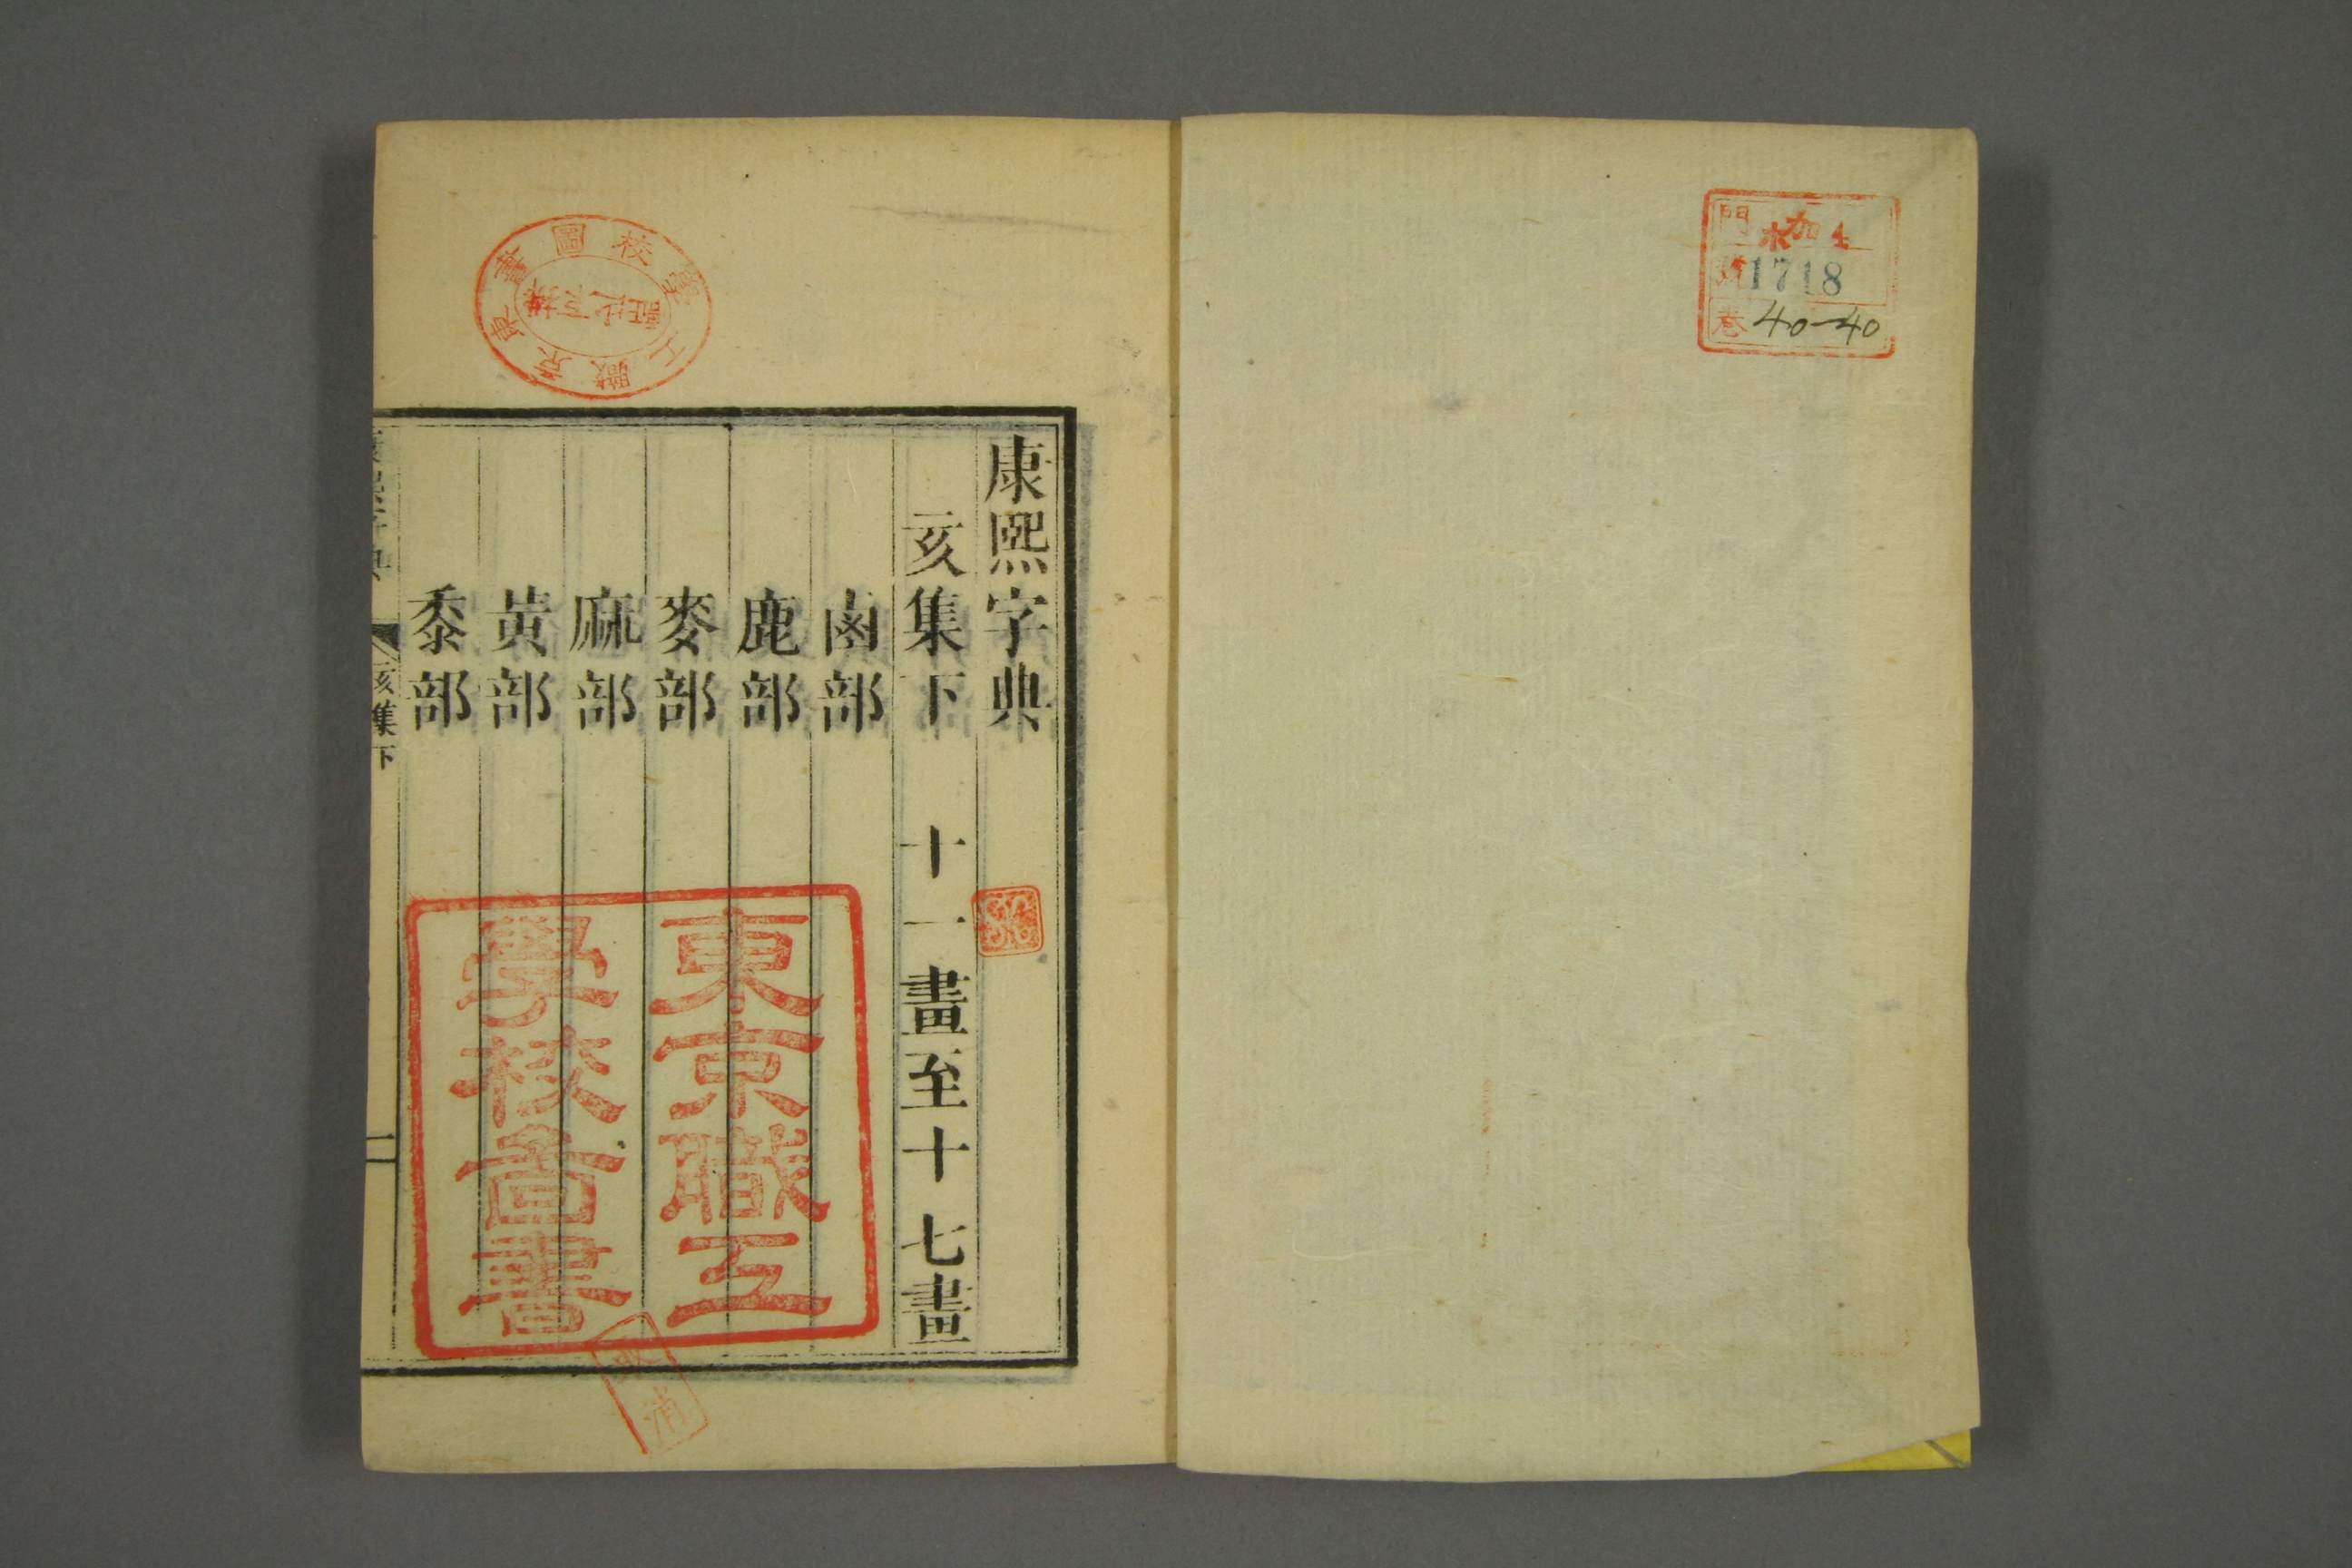 門 加 4
1718
巻 40-40
康熙字典
亥集下 十一畫至十七畫
鹵部
鹿部
麥部
麻部
黃部
黍部
康熙字典 亥集下 一
東京職工
學校啚書
東京職工學校圖書